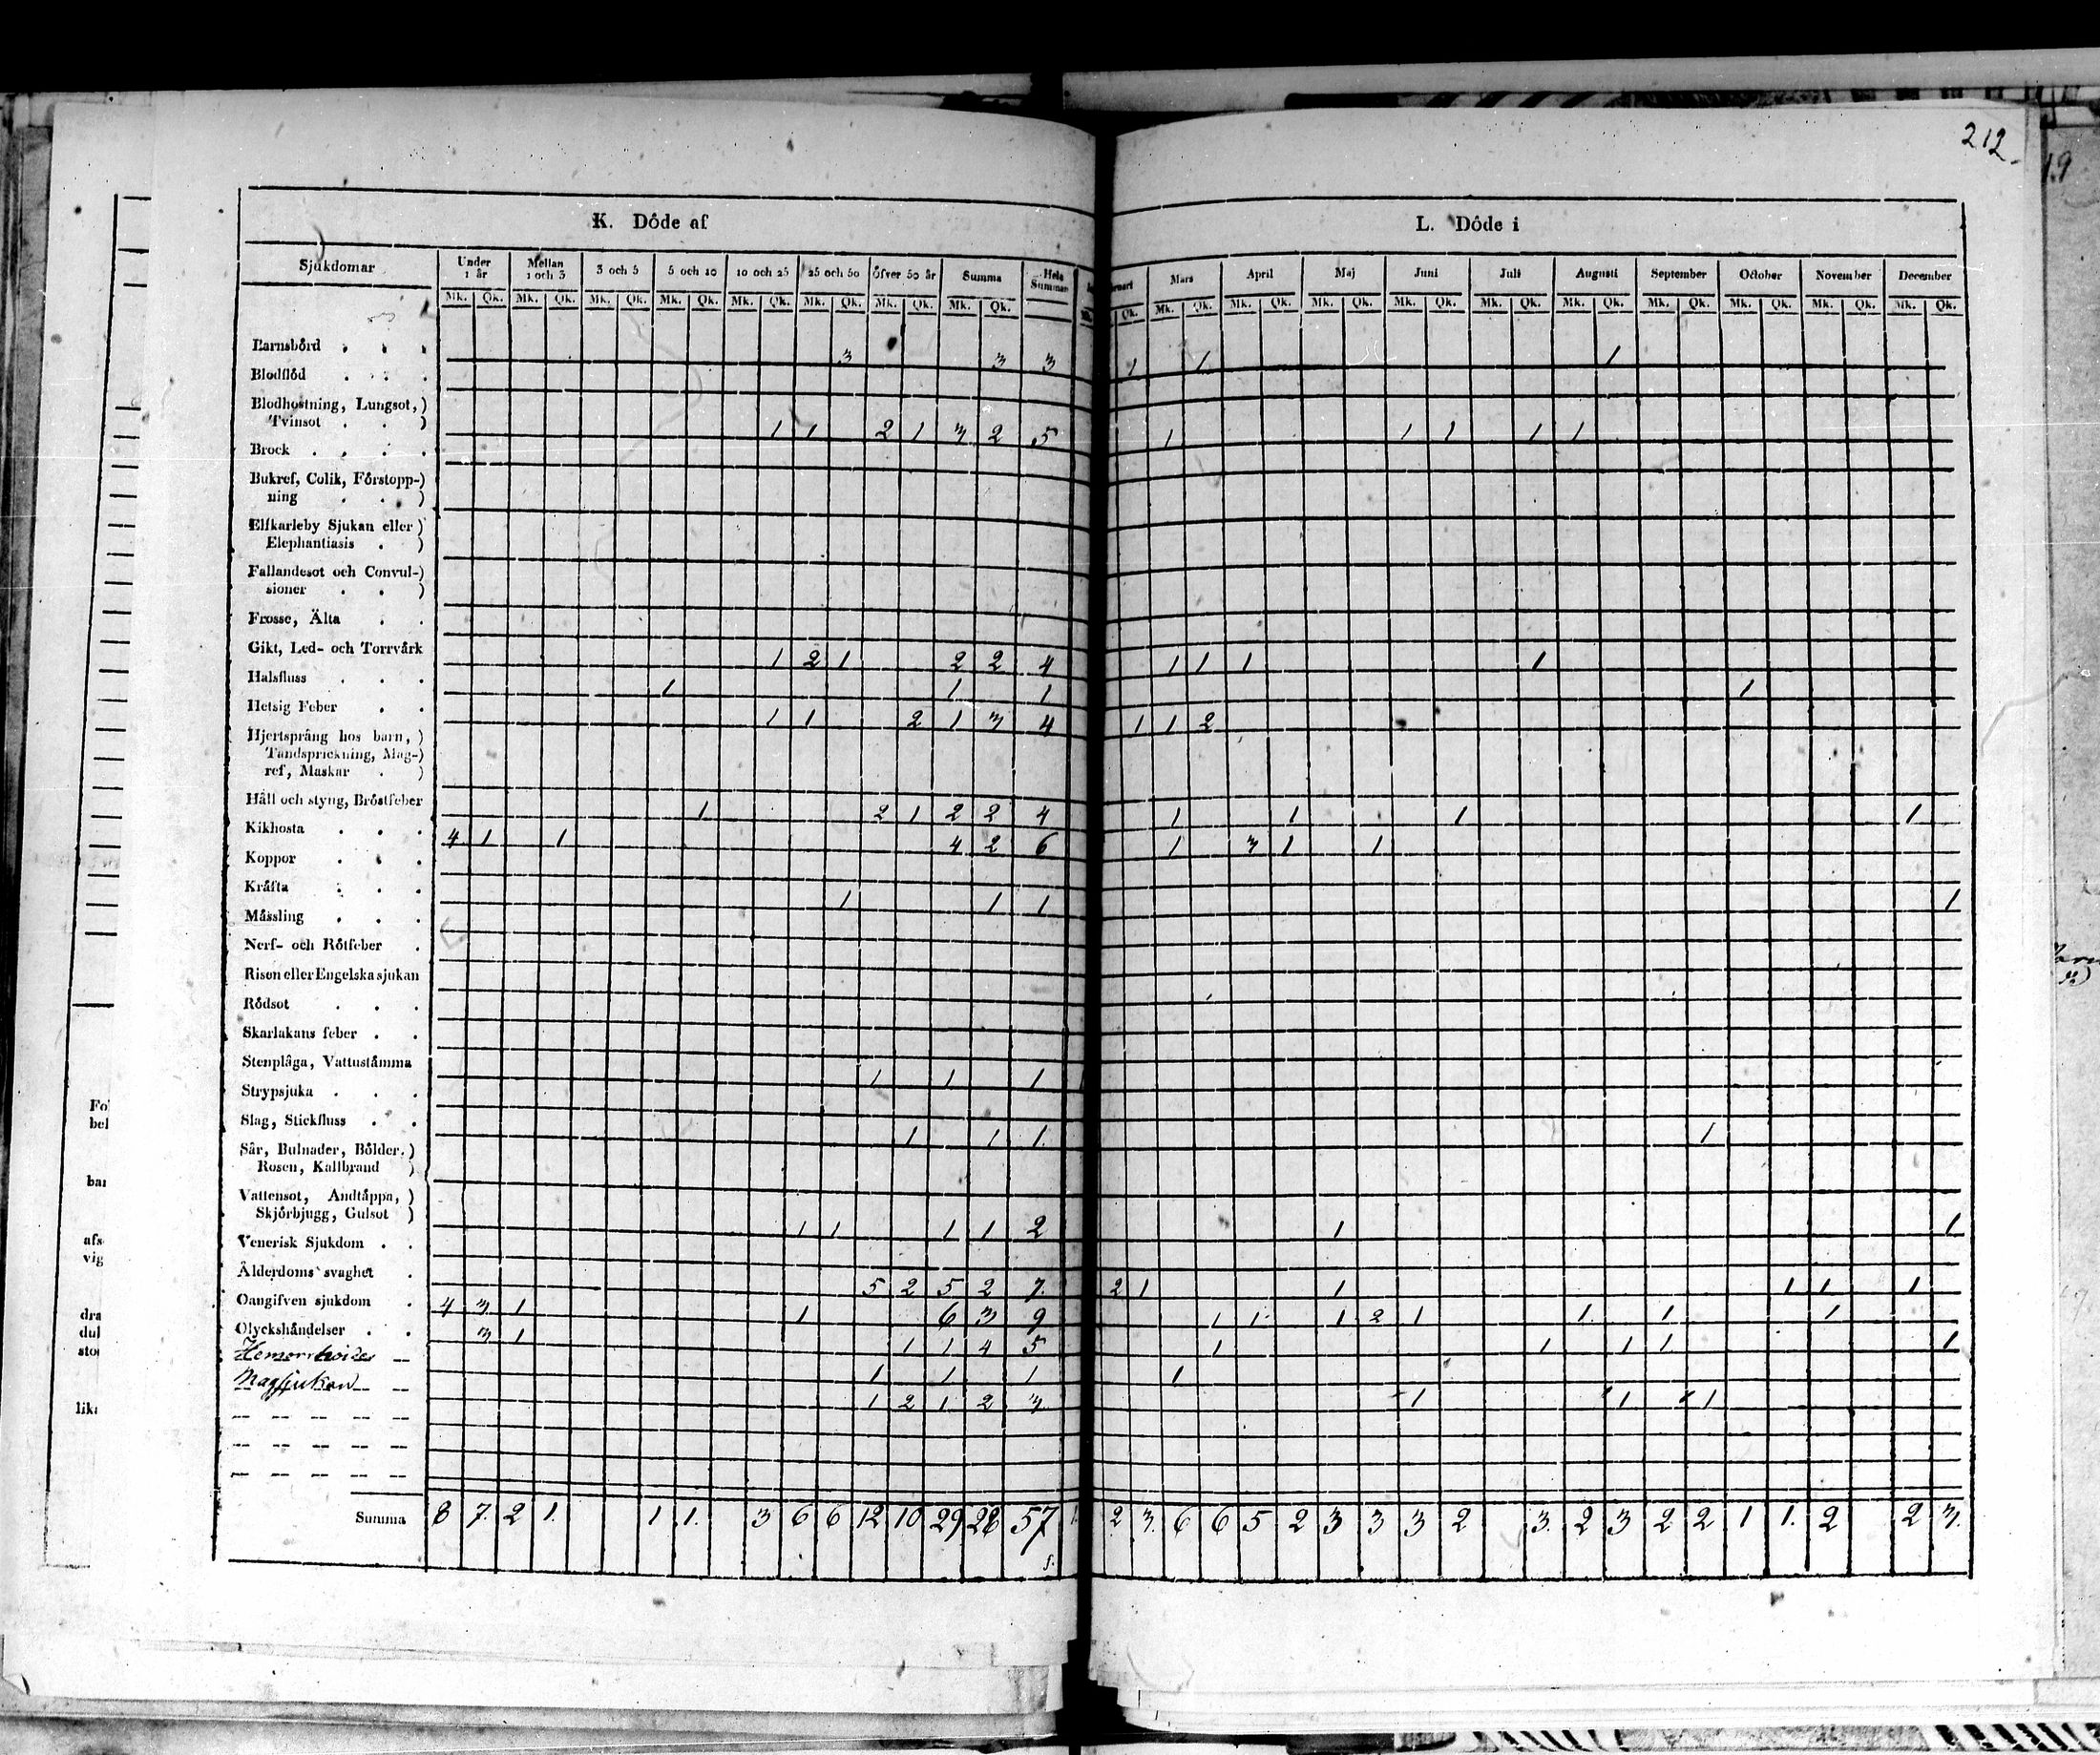 212
K. Döde af
L. Döde i
Sjukdomar Under 1 år Mellan 1 och 3 3 och 5 5 och 10 10 och 25 25 och 50 öfver 50 år Summa Hela Summan Mars April Maj Juni Juli Augusti September October November December
Mk. Qk. Mk. Qk. Mk. Qk. Mk. Qk. Mk. Qk. Mk. Qk. Mk. Qk. Mk. Qk. Qk. Mk. Qk. Mk. Qk. Mk. Qk. Mk. Qk. Mk. Qk. Mk. Qk. Mk. Qk. Mk. Qk. Mk. Qk. Mk. Qk.
Barnsbörd . . . 3 3 3 1 1 1
Blodflöd . . .
Blodhostning, Lungsot, )
Tvinsot . . ) 1 1 2 1 3 2 5 1 1 1 1 1
Brock . . . .
Bukref, Colik, Förstopp-)
ning . . )
Elfkarleby Sjukan eller )
Elephantiasis . )
Fallandesot och Convul-)
sioner . . )
Frosse, Älta . .
Gikt, Led- och Torrvärk 1 2 1 2 2 4 1 1 1 1
Halsfluss . . . 1 1 1 1
Hetsig Feber . . 1 1 2 1 3 4 1 1 2
Hjertsprång hos barn, )
Tandsprickning, Mag-)
ref, Maskar . )
Håll och styng, Bröstfeber 1 2 1 2 2 4 1 1 1 1
Kikhosta . . . 4 1 1 4 2 6 1 3 1 1
Koppor . . .
Kräfta . . . 1 1 1 1
Mässling . . .
Nerf- och Rötfeber .
Risen eller Engelska sjukan
Rödsot . . .
Skarlakans feber . .
Stenplåga, Vattustämma 1 1 1 1
Strypsjuka . . .
Slag, Stickfluss . . 1 1 1. 1
Sår, Bulnader, Bölder, )
Rosen, Kallbrand )
Vattensot, Andtäppa, )
Skjörbjugg, Gulsot ) 1 1 1 1 2 1 1
Venerisk Sjukdom . .
Älderdoms svaghet . 5 2 5 2 7. 2 1 1 1 1 1
Oangifven sjukdom . 4 3 1 1 6 3 9 1 1 1 2 1 1 1 1
Olyckshändelser . . 3 1 1 1 4 5 1 1 1 1 1
Hemorrhoides 1 1 1 1
Magsjukan 1 2 1 2 3 1 1 1
Summa 8 7. 2 1. 1 1. 3 6 6 12 10 29 28 57 1. 2 3. 6 6 5 2 3 3 3 2 3. 2 3 2 2 1 1. 2 2 3.